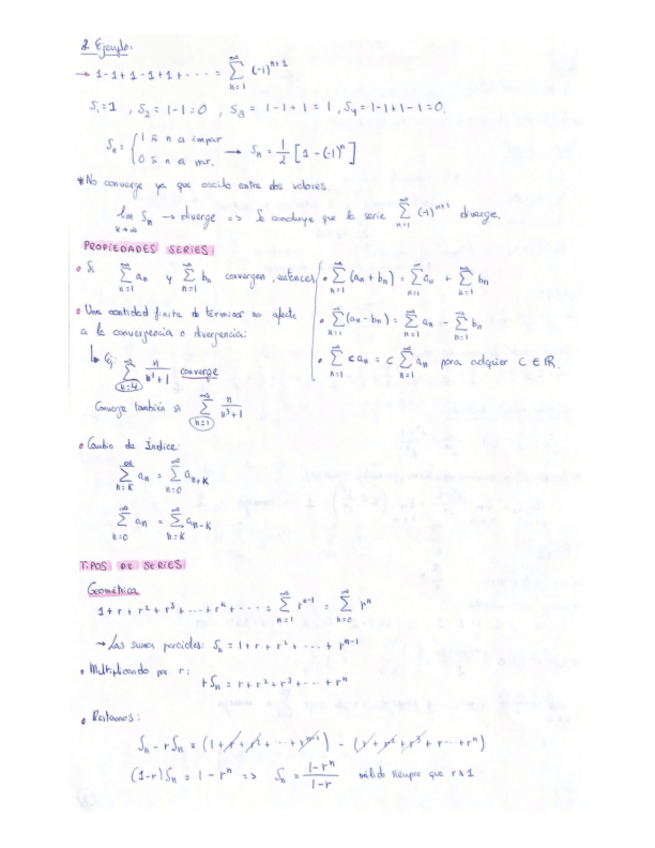 2. Ejemplo:
→ 1-1+1-1+1+ ···· = ∑_{n=1}^{∞} (-1)^{n+1}
S₁=1 , S₂ = 1-1=0 , S₃ = 1-1+1 = 1 , S₄ = 1-1+1-1=0.
Sₙ = { 1 si n es impar
0 si n es par. → Sₙ = 1/2 [1 - (-1)ⁿ]
*No converge ya que oscila entre dos valores.
lim_{n→∞} Sₙ → diverge => Se concluye que la serie ∑_{n=1}^{∞} (-1)^{n+1} diverge.
PROPIEDADES SERIES
• Si ∑_{n=1}^{∞} aₙ y ∑_{n=1}^{∞} bₙ convergen, entonces
• ∑_{n=1}^{∞} (aₙ + bₙ) = ∑_{n=1}^{∞} aₙ + ∑_{n=1}^{∞} bₙ
• ∑_{n=1}^{∞} (aₙ - bₙ) = ∑_{n=1}^{∞} aₙ - ∑_{n=1}^{∞} bₙ
• ∑_{n=1}^{∞} c aₙ = c ∑_{n=1}^{∞} aₙ para cualquier C ∈ ℝ.
• Una cantidad finita de términos no afecta
a la convergencia o divergencia:
↳ Ej: ∑_{n=4}^{∞} n/(n³+1) converge
Converge también si ∑_{n=1}^{∞} n/(n³+1)
• Cambio de Índice:
∑_{n=K}^{∞} aₙ = ∑_{n=0}^{∞} a_{n+K}
∑_{n=0}^{∞} aₙ = ∑_{n=K}^{∞} a_{n-K}
TIPOS DE SERIES
Geométrica
1 + r + r² + r³ + ···· + rⁿ + ···· = ∑_{n=1}^{∞} r^{n-1} = ∑_{n=0}^{∞} rⁿ
→ Las sumas parciales: Sₙ = 1 + r + r² + ···· + r^{n-1}
• Multiplicando por r:
rSₙ = r + r² + r³ + ···· + rⁿ
• Restamos:
Sₙ - rSₙ = (1 + r + r² + ···· + r^{n-1}) - (r + r² + r³ + r···· + rⁿ)
(1-r)Sₙ = 1 - rⁿ => Sₙ = (1-rⁿ)/(1-r) válido siempre que r≠1